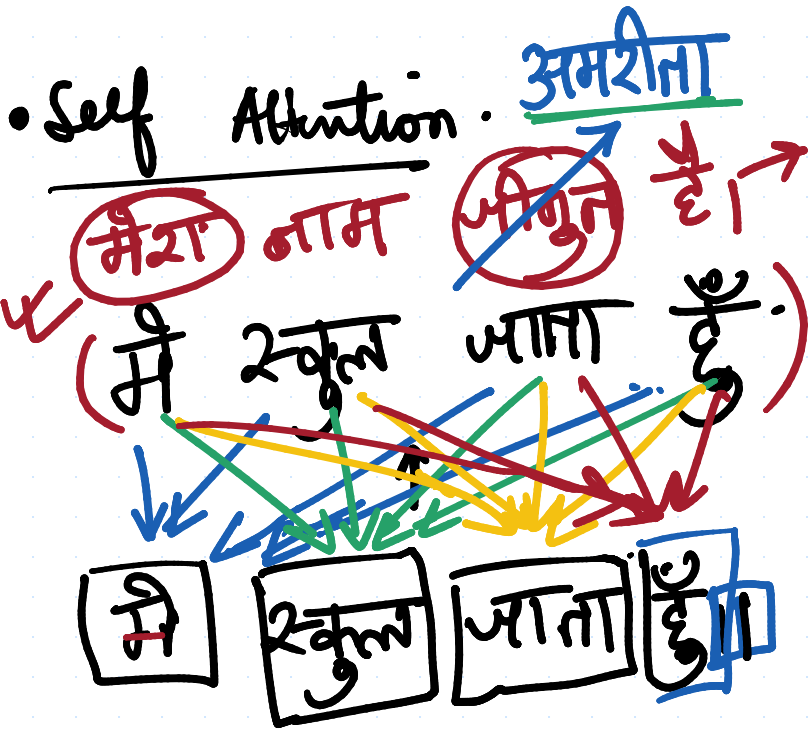 • Self Attention.
अमरीता
मेरा नाम है।
(मै स्कूल जाता हूँ)
मै स्कूल जाता हूँ ॥